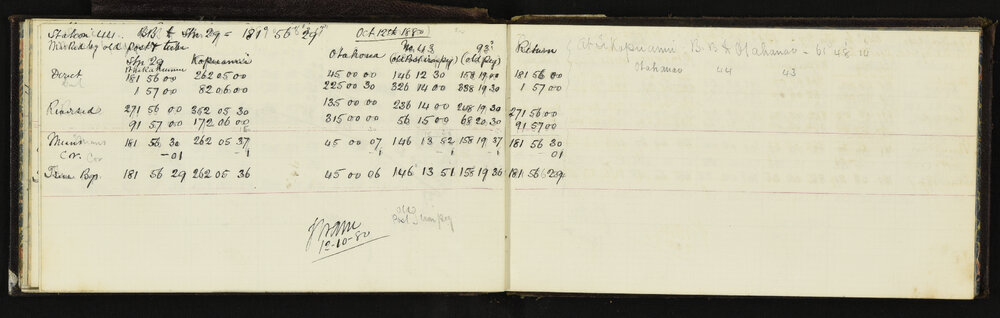 Station 441. B.B. & Stn 29 = 181° 56' 29" Oct 12th 1880
Marked by old post & tube
Stn 29 Kapuariki Otahoua No. 43 93 Return
(old Post iron peg) (old peg)
Direct 181 56 00 262 05 00 45 00 00 146 12 30 158 19 00 181 56 00
1 57 00 82 06 00 225 00 30 326 14 00 338 19 30 1 57 00
Reversed 271 56 00 352 05 30 135 00 00 236 14 00 248 19 30 271 56 00
91 57 00 172 06 00 315 00 00 56 15 00 68 20 30 91 57 00
Means 181 56 30 262 05 37 45 00 07 146 13 52 158 19 37 181 56 30
Cor. Cor -01 -1 -1 -1 -1 01
True Bgs. 181 56 29 262 05 36 45 00 06 146 13 51 158 19 36 181 56 29
12-10-80
old Post iron peg
B.B. & Otahanao - 61 48 10
Otahanao 44 43